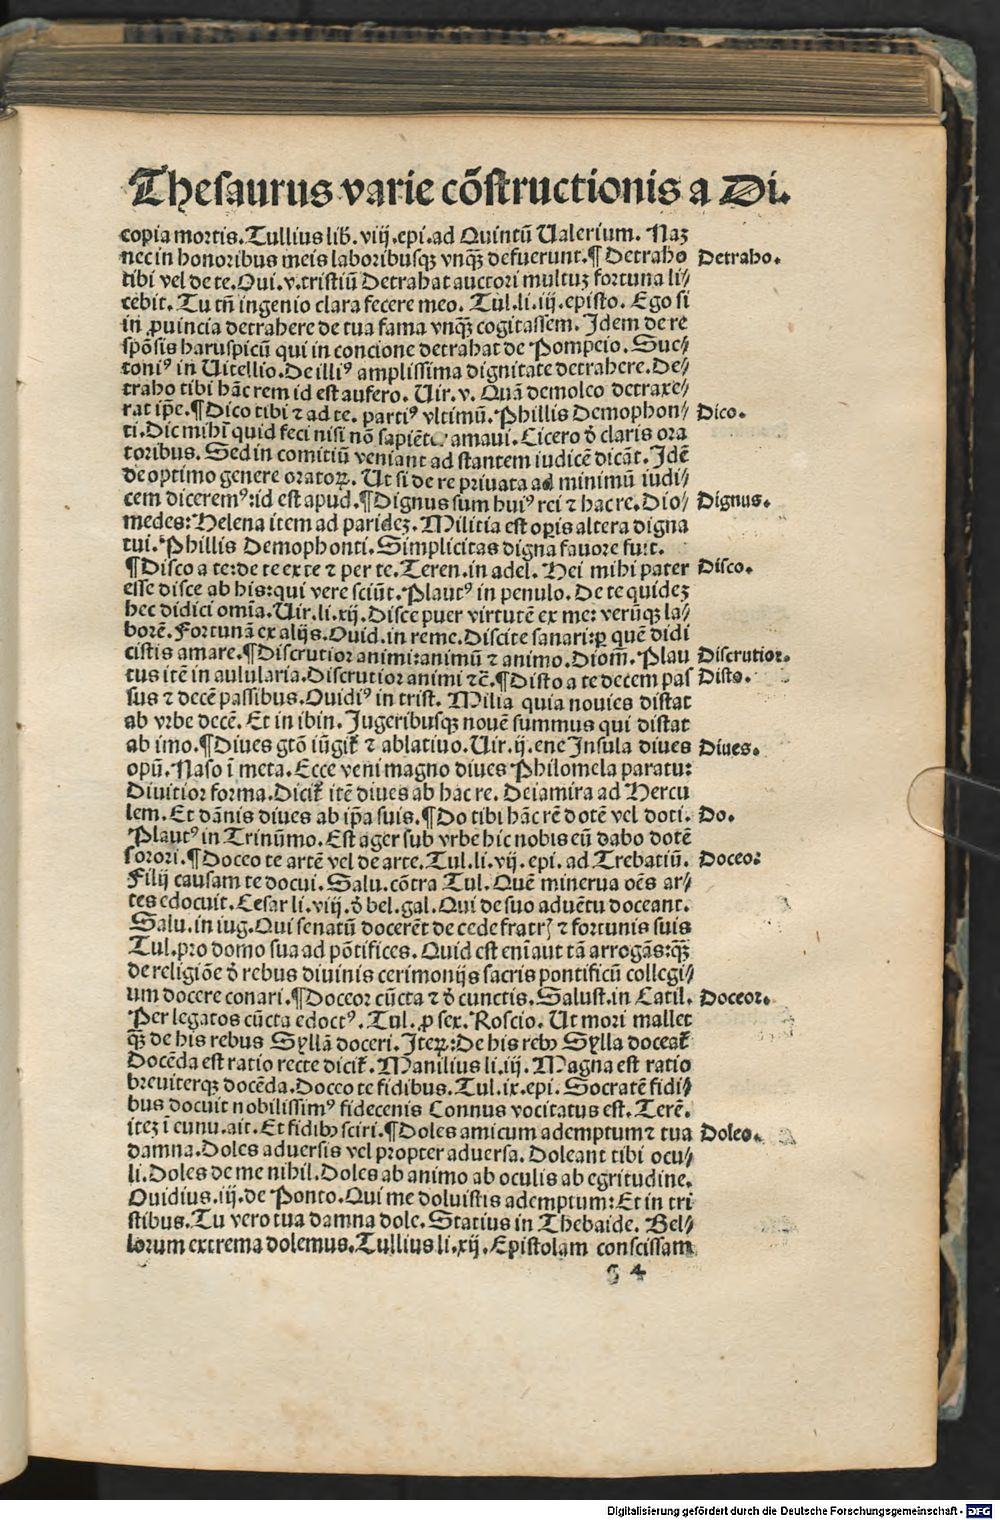 Thesaurus varie cõstructionis a Di.
copia mortis. Tullius lib. viij. epi. ad Quintũ Ualerium. Naꝫ
nec in honoribus meis laboribusqꝫ vnqꝫ̃ defuerunt. ¶ Detraho Detraho.
tibi vel de te. Oui. v. tristiũ Detrahat auctori multuꝫ fortuna li⸗
cebit. Tu tñ ingenio clara fecere meo. Tul. li. iij. episto. Ego si
in ꝓuincia detrahere de tua fama vnqꝫ̃ cogitassem. Idem de re
spõsis haruspicũ qui in concione detrahat de Pompeio. Sue⸗
toniꝰ in Uitellio. De illiꝰ amplissima dignitate detrahere. De⸗
traho tibi hãc rem id est aufero. Uir. v. Quã demoleo detraxe⸗
rat ip̃e. ¶ Dico tibi ⁊ ad te. partiꝰ vltimũ. Phillis Demophon⸗ Dico.
ti. Dic mihi quid feci nisi nõ sapiẽte amaui. Cicero ð claris ora
toribus. Sed in comitiũ veniant ad stantem iudicẽ dicãt. Idẽ
de optimo genere oratoꝝ. Ut si de re priuata ad minimũ iudi⸗
cem diceremꝰ: id est apud. ¶ Dignus sum huiꝰ rei ⁊ hac re. Dio⸗ Dignus.
medes: Helena item ad parideꝫ. Militia est oꝑis altera digna
tui. Phillis Demophonti. Simplicitas digna fauore fuit.
¶ Disco a te: de te ex te ⁊ per te. Teren. in adel. Hei mihi pater Disco.
esse disce ab his: qui vere sciũt. Plautꝰ in penulo. De te quideꝫ
hec didici om̃ia. Uir. li. xij. Disce puer virtutẽ ex me: verũqꝫ la⸗
borẽ. Fortunã ex alijs. Ouid. in reme. Discite sanari: ꝑ quẽ didi
cistis amare. ¶ Discrutior animi: animũ ⁊ animo. Diom̃. Plau Discrutior.
tus itẽ in aulularia. Discrutior animi ⁊c̃. ¶ Disto a te decem pas Disto.
sus ⁊ decẽ passibus. Ouidiꝰ in trist. Milia quia nouies distat
ab vrbe decẽ. Et in ibin. Iugeribusqꝫ nouẽ summus qui distat
ab imo. ¶ Diues gtõ iũgit̃ ⁊ ablatiuo. Uir. ij. ene Insula diues Diues.
opũ. Naso ĩ meta. Ecce veni magno diues Philomela paratu:
Diuitior forma. Dicit̃ itẽ diues ab hac re. Deiamira ad Hercu
lem. Et dãnis diues ab ip̃a suis. ¶ Do tibi hãc rẽ dotẽ vel doti. Do.
Plautꝰ in Trinũmo. Est ager sub vrbe hic nobis eũ dabo dotẽ
sorori. ¶ Doceo te artẽ vel de arte. Tul. li. vij. epi. ad Trebatiũ. Doceo:
Filij causam te docui. Salu. cõtra Tul. Quẽ minerua oẽs ar⸗
tes edocuit. Cesar li. viij. ð bel. gal. Qui de suo aduẽtu doceant.
Salu. in iug. Qui senatũ docerẽt de cede fratrꝭ ⁊ fortunis suis
Tul. pro domo sua ad põtifices. Quid est enĩ aut tã arrogãs: qꝫ̃
de religiõe ð rebus diuinis cerimonijs sacris pontificũ collegi⸗
um docere conari. ¶ Doceor cũcta ⁊ ð cunctis. Salust. in Catil. Doceor.
Per legatos cũcta edoctꝰ. Tul. ꝓ sex. Roscio. Ut mori mallet
qꝫ̃ de his rebus Syllã doceri. Iteꝝ: De his rebꝰ Sylla doceat̃
Docẽda est ratio recte dicit̃. Manilius li. iij. Magna est ratio
breuiterqꝫ docẽda. Docco te fidibus. Tul. ix. epi. Socratẽ fidi⸗
bus docuit nobilissimꝰ fidecenis Connus vocitatus est. Terẽ.
iteꝫ ĩ eunu. ait. Et fidibꝰ sciri. ¶ Doles amicum ademptum ⁊ tua Doleo.
damna. Doles aduersis vel propter aduersa. Doleant tibi ocu⸗
li. Doles de me nihil. Doles ab animo ab oculis ab egritudine.
Ouidius. iij. de Ponto. Qui me doluistis ademptum: Et in tri
stibus. Tu vero tua damna dole. Statius in Thebaide. Bel⸗
lorum extrema dolemus. Tullius li. xij. Epistolam conscissam
g 4
Digitalisierung gefördert durch die Deutsche Forschungsgemeinschaft - DFG